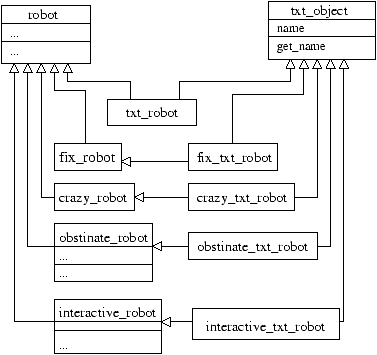 robot
...
...
txt_object
name
get_name
txt_robot
fix_robot
fix_txt_robot
crazy_robot
crazy_txt_robot
obstinate_robot
...
...
obstinate_txt_robot
interactive_robot
...
interactive_txt_robot